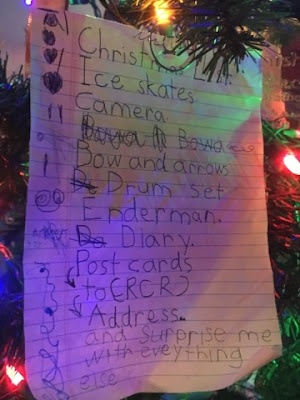 Christmas List.
Ice skates
Camera
Bow and arrows
Drum set
Enderman.
Diary.
Post cards
to (RCR)
Address.
and surprise me
with eveything
else